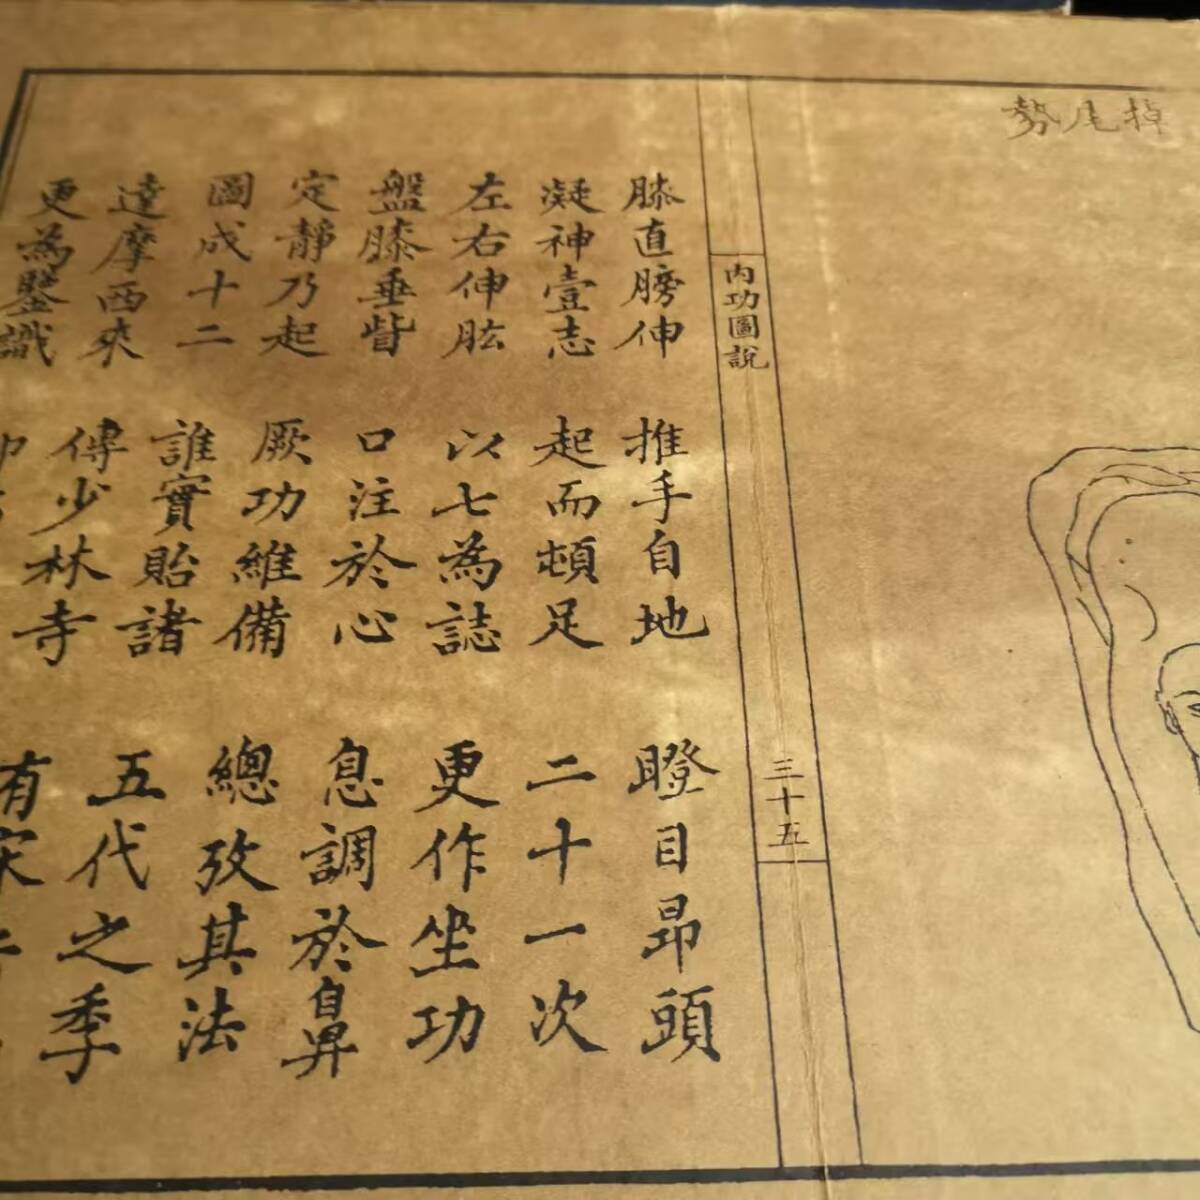 掉尾勢
內功圖說
三十五
膝直膀伸 推手自地 瞪目昂頭
凝神壹志 起而頓足 二十一次
左右伸肱 以七為誌 更作坐功
盤膝垂眥 口注於心 息調於鼻
定靜乃起 厥功維備 總攷其法
圖成十二 誰實貽諸 五代之季
達摩西來 傳少林寺 有宋
更為鑒識